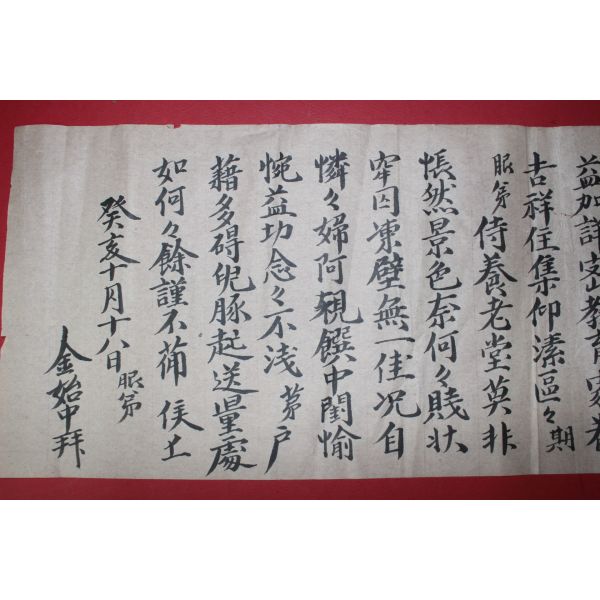 益加詳密教育家眷
吉祥住集仰溸區々期
服弟侍養老堂莫非
悵然景色奈何々賤狀
牢囚凍壁無一佳况自
憐々婦阿親饌中閨愉
惋益功念々不浅 茅戶
藉多碍倪豚起送量處
如何々餘謹不莭 俟上
癸亥十月十八日 服弟
金始中拜